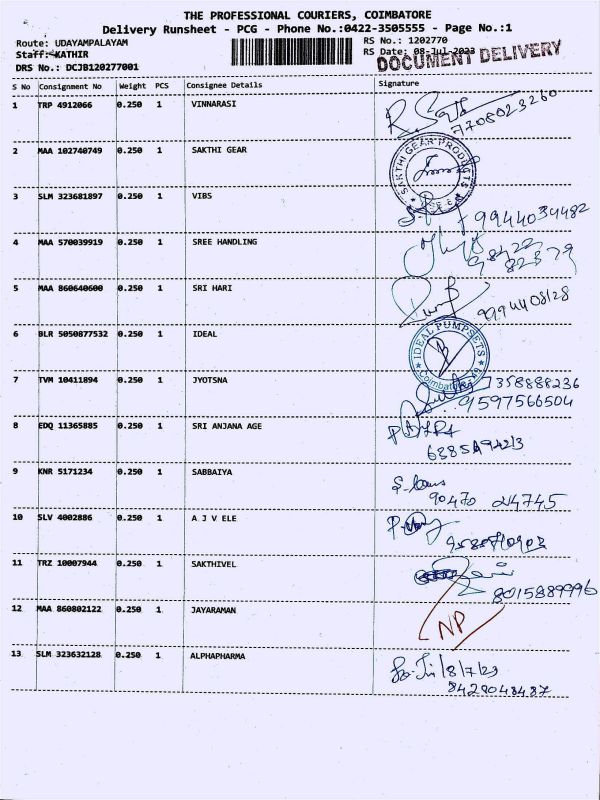 THE PROFESSIONAL COURIERS, COIMBATORE
Delivery Runsheet - PCG - Phone No.:0422-3505555 - Page No.:1
Route: UDAYAMPALAYAM
RS No.: 1202770
Staff: KATHIR
RS Date: 08-Jul-2023
DRS No.: DCJB120277001
DOCUMENT DELIVERY
S No Consignment No Weight PCS Consignee Details Signature
1 TRP 4912066 0.250 1 VINNARASI
7708023260
2 MAA 102740749 0.250 1 SAKTHI GEAR
SAKTHI GEAR PRODUCTS
3 SLM 323681897 0.250 1 VIBS
9944034482
4 MAA 570039919 0.250 1 SREE HANDLING
98422
82379
5 MAA 860640600 0.250 1 SRI HARI
9994408128
6 BLR 5050877532 0.250 1 IDEAL
IDEAL PUMPSETS
Coimbatore
7 TVM 10411894 0.250 1 JYOTSNA
7358888236
9597566504
8 EDQ 11365885 0.250 1 SRI ANJANA AGE
9 KNR 5171234 0.250 1 SABBAIYA
90470 24745
10 SLV 4002886 0.250 1 A J V ELE
11 TRZ 10007944 0.250 1 SAKTHIVEL
8015889996
12 MAA 860802122 0.250 1 JAYARAMAN
NP
13 SLM 323632128 0.250 1 ALPHAPHARMA
18/7/23